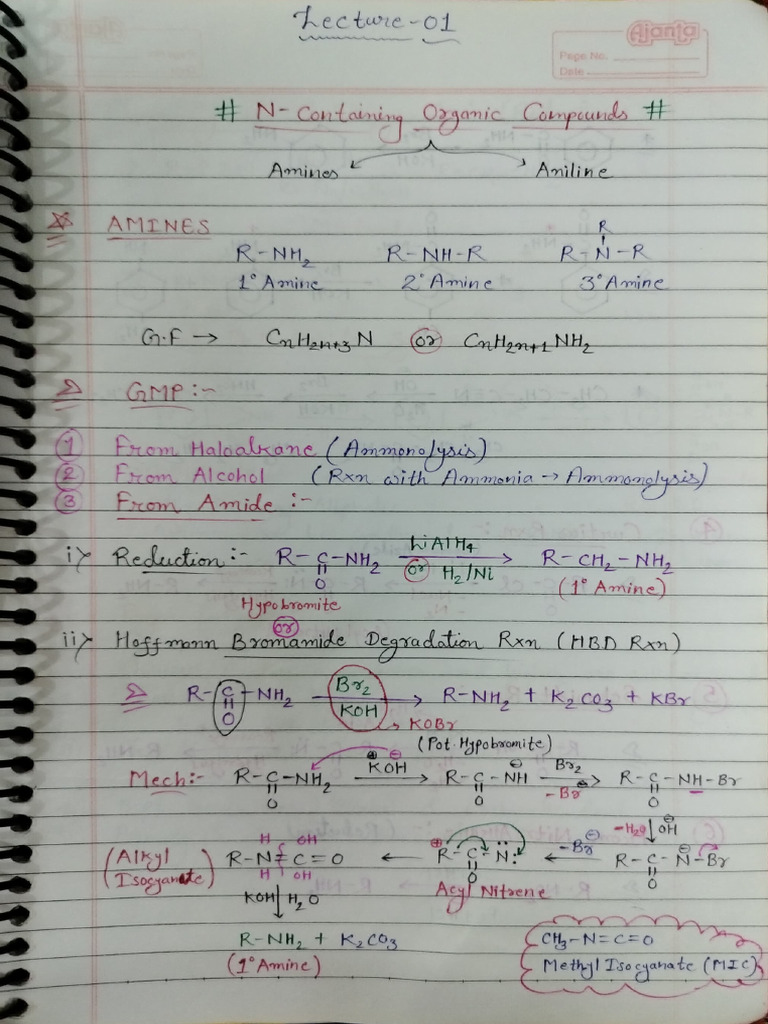 Lecture-01
Ajanta
Page No.
Date
# N-Containing Organic Compounds #
Amines Aniline
AMINES
R
R-NH₂ R-NH-R R-N-R
1° Amine 2° Amine 3° Amine
G.F → CnH2n+3N or CnH2n+1NH₂
GMP :-
1 From Haloalkane (Ammonolysis)
2 From Alcohol (Rxn with Ammonia → Ammonolysis)
3 From Amide :-
i> Reduction :- R-C-NH₂ LiAlH4 or H₂/Ni → R-CH₂-NH₂
O
(1° Amine)
Hypobromite
or
ii> Hoffmann Bromamide Degradation Rxn (HBD Rxn)
R-C-NH₂ Br₂ KOH → R-NH₂ + K₂CO₃ + KBr
O
→ KOBr
(Pot. Hypobromite)
Mech:- R-C-NH₂ ⊕ ⊖ KOH → R-C-NH ⊖ Br₂ -Br⊖ → R-C-NH-Br
O O O
-H₂O ↓ ⊖ OH
(Alkyl Isocyanate) R-N=C=O ← ⊕ R-C-N̈: ← -Br⊖ R-C-N⊖-Br
H OH
H OH
O O
Acyl Nitrene
KOH ↓ H₂O
R-NH₂ + K₂CO₃
(1° Amine)
CH₃-N=C=O
Methyl Isocyanate (MIC)